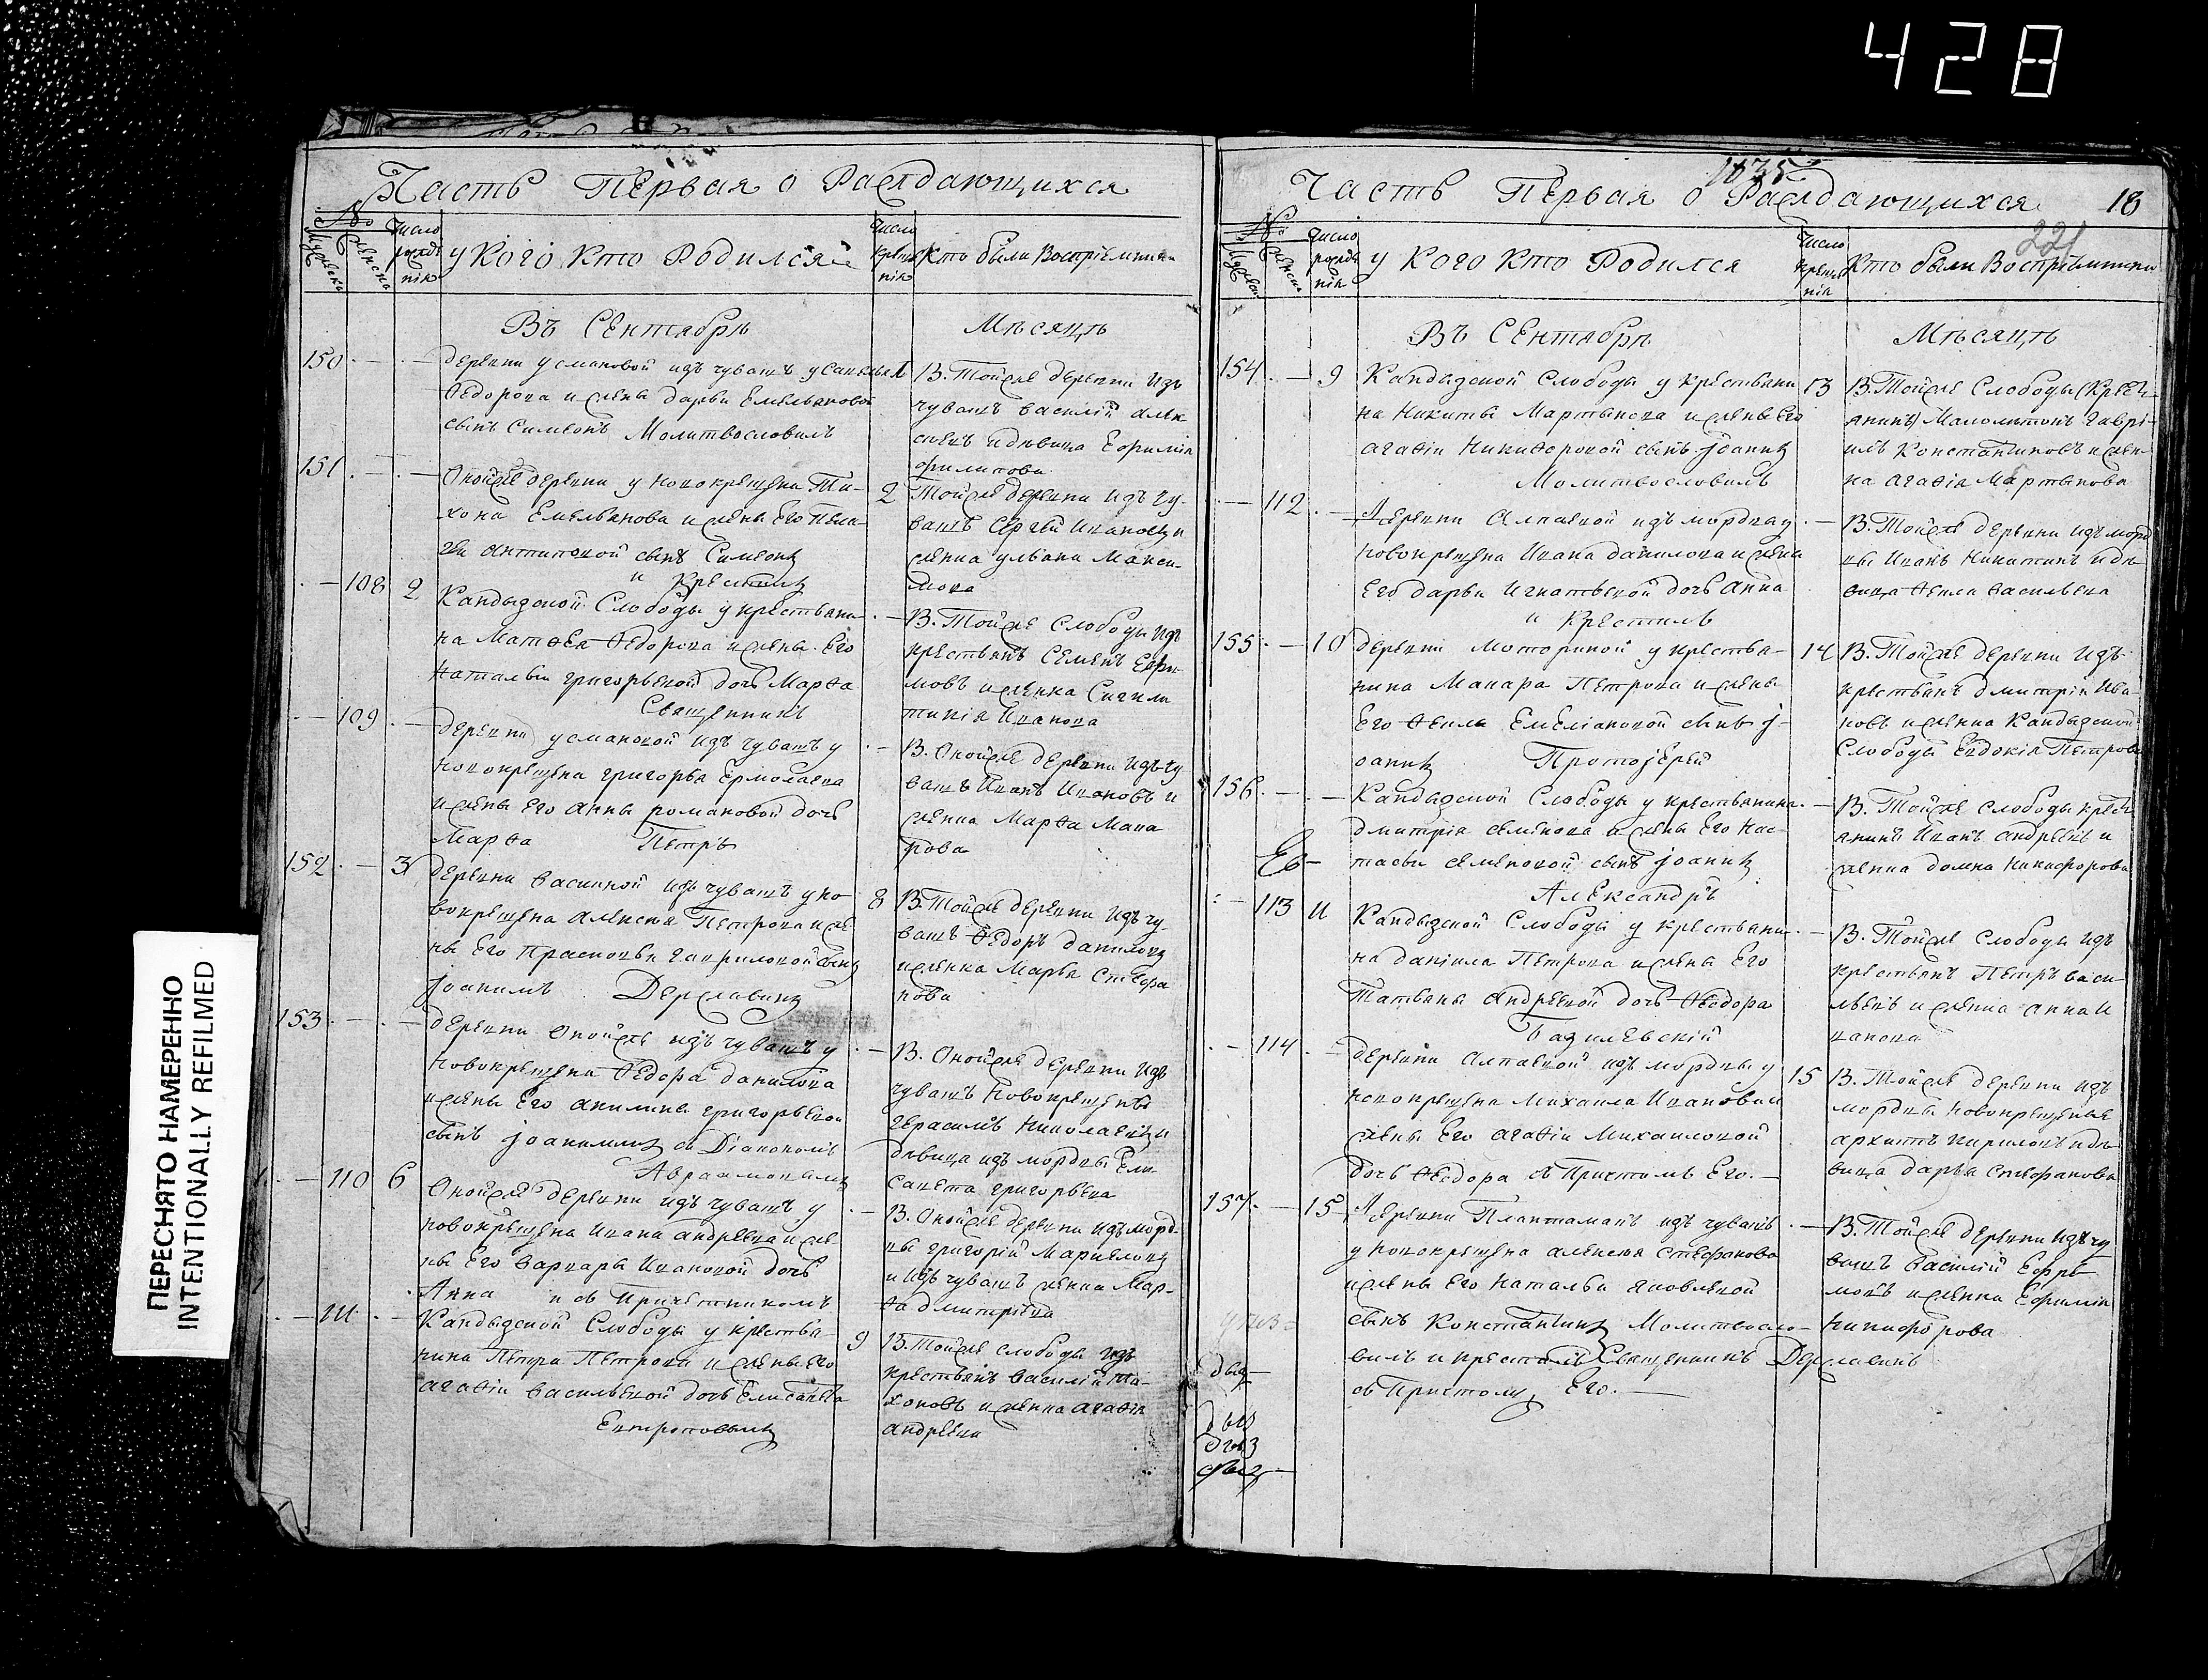 428
ПЕРЕСНЯТО НАМЕРЕННО
INTENTIONALLY REFILMED
Часть Первая о Раждающихся
№
Мужеска
Женска
число рожде нія
у кого кто Родился
число креще нія
кто были Воспріемники
Въ Сентябрѣ Мѣсяцѣ
150
деревни Усмановой изъ чувашъ у
Федорова и жены дарьи Емельяновой
сынъ Симеонъ Молитвословилъ
1
В. Тойже деревни Изъ
чувашъ василій алек
сѣевъ и дѣвица Еѳимія
филипова
151
Онойже деревни у новокрещена Ти-
хона Емельянова и жены Его Пела-
геи антиповой сынъ Симеонъ
и Крестилъ
2
Тойже деревни изъ чу-
вашъ Сергѣй Ивановъ и
женка ульяна Макси-
мова
108 2
Кандызской Слободы у крестьяни-
на Матфея Федорова и жены Его
Натальи григорьевой дочь Марфа
Священникъ
В. Тойже Слободы Изъ
крестьянъ Семенъ Ефи-
мовъ и женка
Иванова
109
деревни усмановой изъ чувашъ у
новокрещена григорья Ермолаева
и жены Его анны романовой дочь
Марфа Петръ
В. Онойже деревни изъ чу
вашъ Иванъ Ивановъ и
женка Марфа Мака
рова
152 3
деревни васикной изъ чувашъ у но-
вокрещена алексея Петрова и же
ны Его Прасковьи гавриловой сынъ
Іоакимъ Державинъ
8
В. Тойже деревни изъ чу-
вашъ Федоръ даниловъ
и женка Марья Стефа
нова
153
деревни Онойже изъ чувашъ у
новокрещена Федора данилова
и жены Его акилины григорьевой
сынъ Іоакимъ съ Діакономъ
Авраамовымъ
В. Онойже деревни Изъ
чувашъ Новокрещенъ
герасимъ Николаевъ и
дѣвица изъ мордвы Ели
савета григорьева
110 6
Онойже деревни изъ чувашъ у
новокрещена Ивана андреева и же
ны Его варвары Ивановой дочь
Анна и съ Причетникомъ
В. Онойже деревни изъ морд-
вы григорій
и изъ чувашъ женка Мар-
фа дмитріева
111
Кандызской Слободы у крестья-
нина Петра Петрова и жены Его
агафіи васильевой дочь Елисавета
Евтроповымъ
9
В. Тойже слободы изъ
крестьянъ василій Ти-
хоновъ и женка агафія
андреева
1035
Часть Первая о Раждающихся
18
221
№
Мужеска
Женска
число рожде нія
у кого кто Родился
Число крещенія
Кто были Воспріемники
Въ Сентябрѣ Мѣсяцѣ
154 9
Кандызской Слободы у крестьяни
на Никиты Мартынова и жены Его
агафіи Никифоровой сынъ Іоаннъ
Молитвословилъ
13
В. Тойже Слободы крест-
янинъ Малолѣтокъ гаврі-
илъ Константиновъ и жен-
ка агафія Мартынова
112
Деревни Алпаевой изъ мордвы у
новокрещена Ивана данилова и жены
Его дарьи Игнатьевой дочь Анна
и Крестилъ
В. Тойже деревни изъ морд
вы Иванъ Никитинъ и дѣ-
вица Фекла васильева
155 10
деревни Моториной у крестья-
нина Макара Петрова и жены
Его Феклы Емеліановой сынъ І-
оаннъ Протоіерей
14
В. Тойже деревни Изъ
крестьянъ дмитрій Ива-
новъ и женка Кандызской
Слободы Евдокія Петрова
156
Кандызской Слободы у крестьянина
дмитрія семенова и жены Его Нас-
тасьи семеновой сынъ Іоаннъ
Александръ
В. Тойже слободы крест
янинъ Иванъ андреевъ и
женка домна Никифорова
113 11
Кандызской Слободы у крестьяни-
на даніила Петрова и жены Его
Татьяны андреевой дочь Феодора
Базилевскій
В. Тойже Слободы изъ
крестьянъ Петръ васи-
льевъ и женка анна И
ванова
114
деревни Алпаевой изъ мордвы у
новокрещена Михаила Иванова и
жены Его агафіи Михаиловой
дочь Феодора съ Причтомъ Его.
15
В. Тойже деревни изъ
мордвы новокрещеные
архипъ кириловъ и дѣ-
вица дарья Стефанова
157 15
Деревни Плактаманъ изъ чувашъ
у новокрещена алексея Стефанова
и жены Его Натальи яковлевой
сынъ Константинъ Молитвосло-
вилъ и крестилъ Священникъ Державинъ
съ Причтомъ Его.
В. Тойже деревни изъ чу
вашъ василій Ефре
мовъ и женка Еѳимія
Никифорова